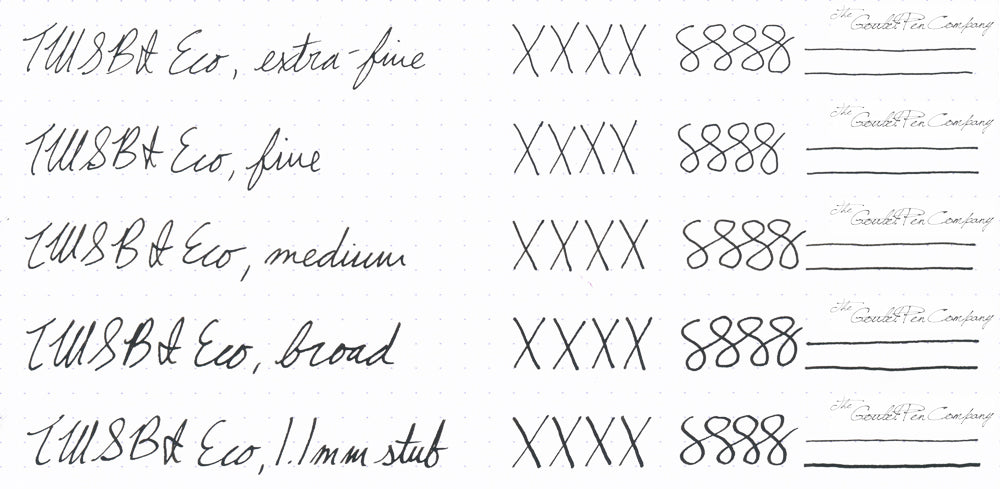 TWSBI Eco, extra-fine XXXX 8888 The Goulet Pen Company
TWSBI Eco, fine XXXX 8888 The Goulet Pen Company
TWSBI Eco, medium XXXX 8888 The Goulet Pen Company
TWSBI Eco, broad XXXX 8888 The Goulet Pen Company
TWSBI Eco, 1.1mm stub XXXX 8888 The Goulet Pen Company